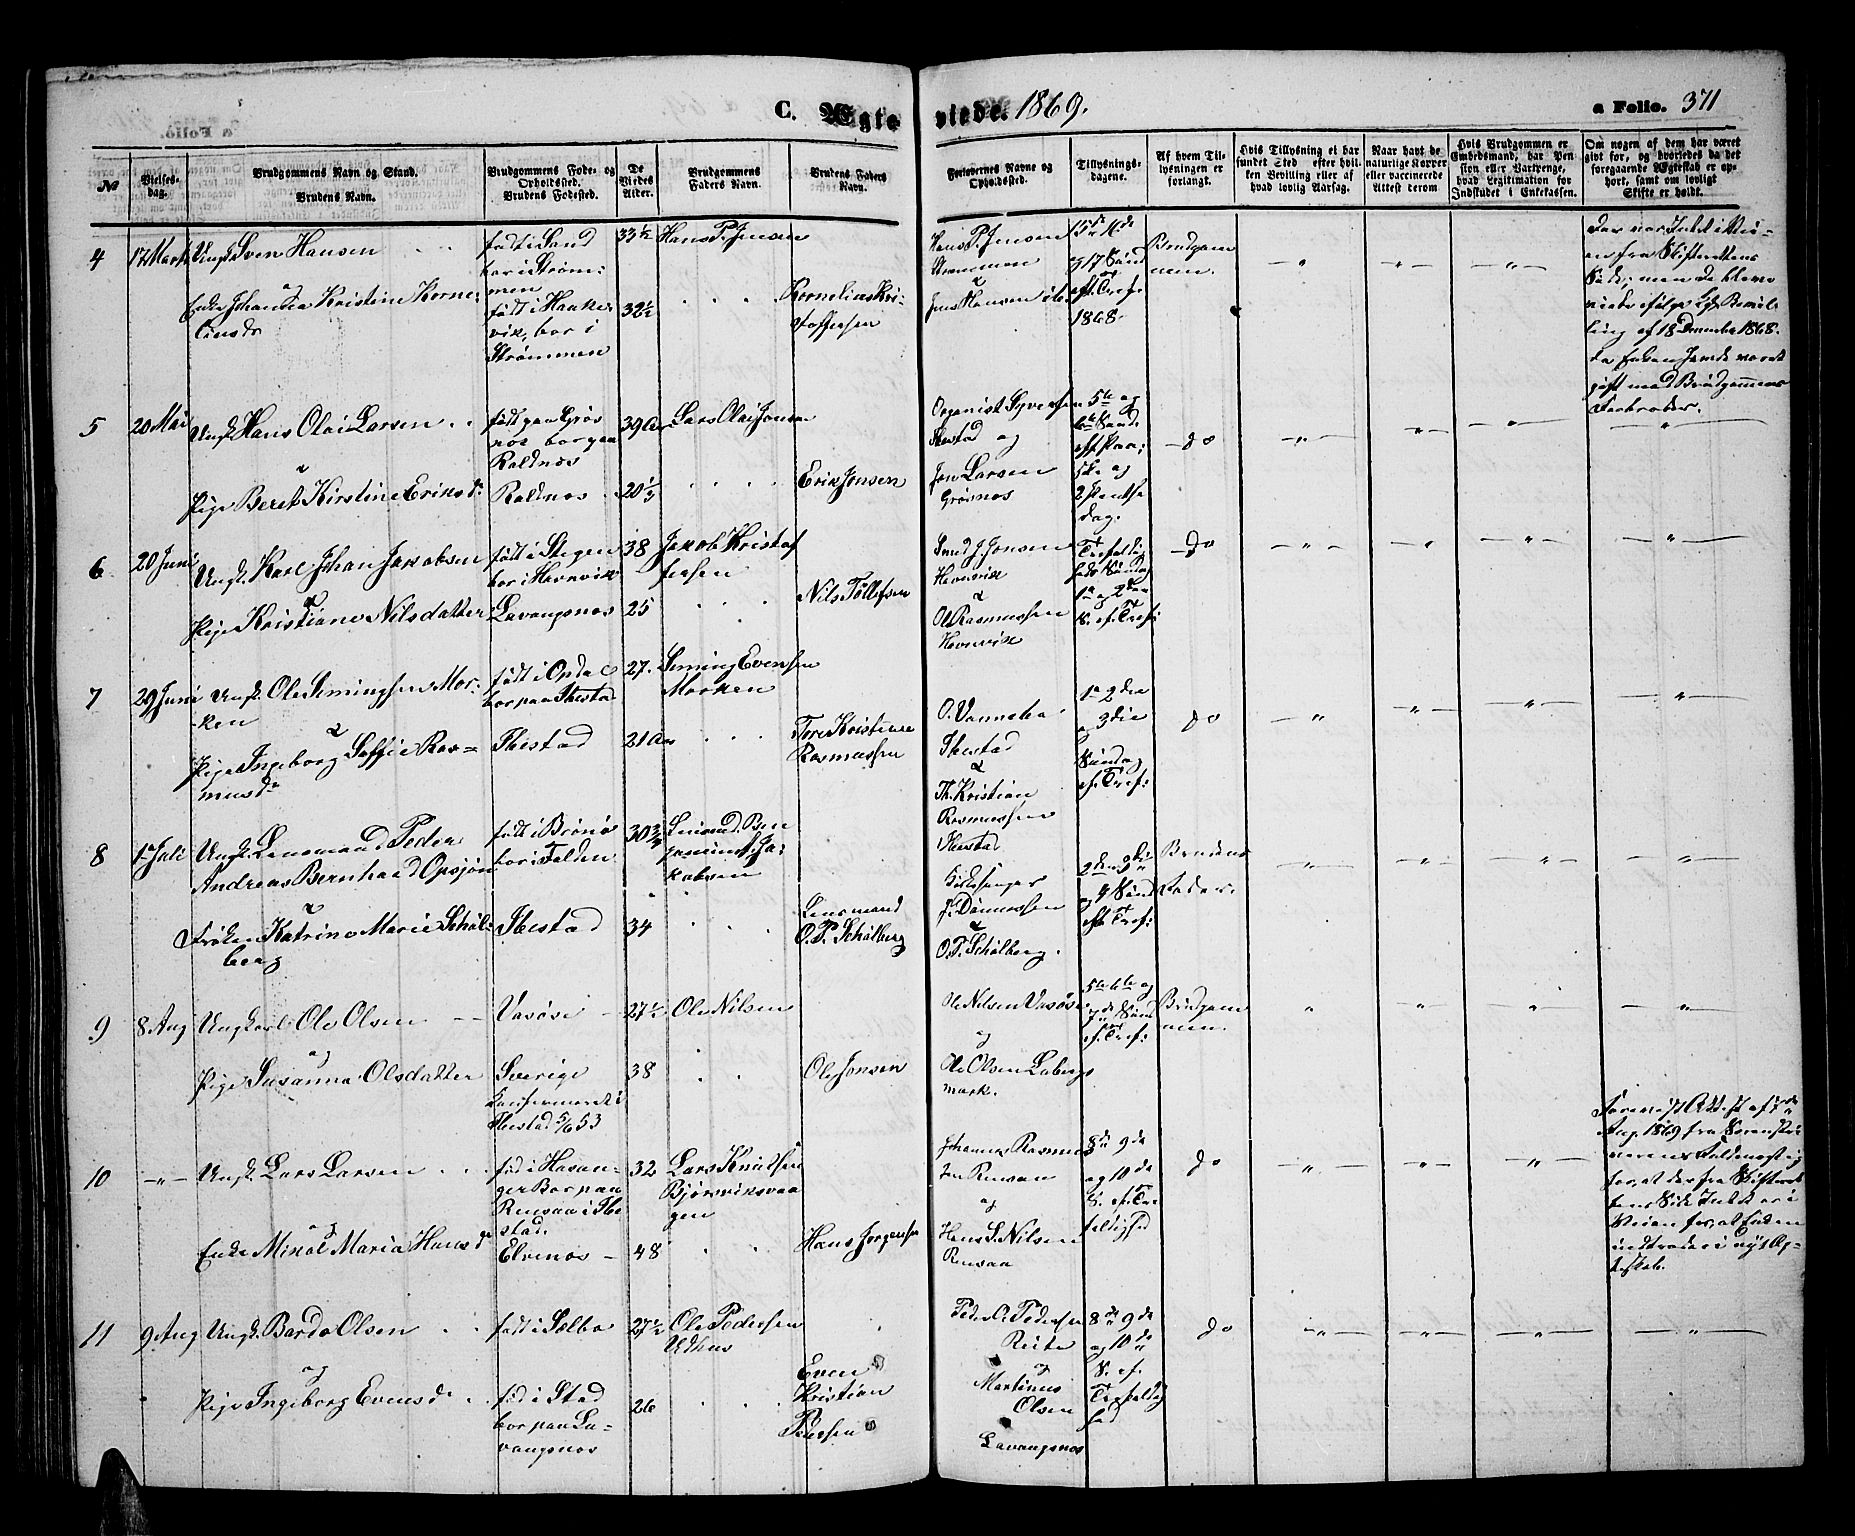 C. Ægte
viede. 1869.
a Folio. 371
№
Vielses-
dag.
Brudgommens Navn og Stand.
Brudens Navn.
Brudgommens Føde- og
Opholdssted.
Brudens Fødested.
De
Viedes
Alder.
Brudgommens
Faders Navn.
Brudens Faders
Navn.
Forlovernes Navne og
Opholdssted.
Tillysnings-
dagene.
Af hvem Til-
lysningen er
forlangt.
Hvis Tillysning ei har
fundet Sted efter hvil-
ken Bevilling eller af
hvad lovlig Aarsag.
Naar havt de
naturlige Kopper
eller vaccinerede
Attest derom
Hvis Brudgommen er
Embedsmand, har Pen
sion eller Vartpenge,
hvad Legitimation for
Indskudet i Enkekassen.
Om nogen af dem har været
givt før, og hvorledes da det
foregaaende Ægteskab er op-
hørt, samt om lovligt
Skifte er holdt.
4
12 Marts
Ungk. Sven Hansen
og
Enke Johanna Kristine Korne-
liusdr
født i Sand
bor i Strøm-
men
født i Haake-
vik, bor i
Strømmen
33½
32½
Hans P. Jensen
Kornelius Kri-
stoffersen
Hans P. Jensen
Strømmen
&
Jens Hansen ib.
15de 16de
og 17 Sønd
eft. Tref.
1868.
Brudgom
men.
Der var Intet i Vei-
en fra Skifterettens
Side; men de bleve
viede ifølge Kgl. Bevil-
ling af 18 December 1868
da Enken havde været
gift med Brudgommens
Farbroder.
5
20 Mai
Ungk. Hans Olai Larsen
&
Pige Beret Kirstine Eriksdr
født paa Grøs
nes bor paa
Roldnes
Roldnes
39 Aar
20⅓
Lars Olai Jonsen
Erik Jonsen
Organist Syversen
Ibestad og
Jon Larsen
Grøsnes
5te og
6te Sønd.
eft. Paa-
ske og
2 Pentse
dag.
do
6
20 Juni
Ungk. Karl Johan Jakobsen
&
Pige Kristiane Nilsdatter
født i Stegen
bor i Havnvik
Lavangsnes
38
25
Jakob Kristof
fersen
Nils Tollefsen
Smed J. Jonsen
Havnvik
&
Ole Rasmussen
Havnvik
Trefoldig
heds Søndag
1ste og 2den
S. ef. Tref:
do
7
29 Juni
Ungk. Ole Simingsen Mor-
ken
&
Pige Ingeborg Soffie Ras-
musdr
født i Opdal
bor paa Ibestad
Ibestad
27.
21 Aar
Siming Evensen
Morken
Tore Kristian
Rasmussen
O. Vanneba
Ibestad
&
Th. Kristian
Rasmussen
Ibestad
1ste 2den
og 3die
Søndag
ef. Tref:
do
8
1ste Juli
Ungk. Lensmand Peder
Andreas Bernhard Opsjøn
&
Frøken Katrine Marie Schøl-
berg
født i Brønø
bor i Folden
Ibestad
30¾
34
Lensmand. Ben
jamin Ja-
kobsen
Lensmand
O. P. Schølberg
Kirkesanger
J. Dønnessen
&
O. P. Schølberg.
2den 3die
og 4 Sønd
eft. Tref:
Brudens
Fader.
9
8 Aug
Ungkarl Ole Olsen
og
Pige Susanna Olsdatter
Vasøse
Sverige
konfirmeret i
Ibestad 5/6 53
27½
38
Ole Nilsen
Ole Jonsen
Ole Nilsen Vasøse
og
Ole Olsen Laberg
mark.
5te 6te og
7de Sønd
ef. Tref:
Brudgom
men.
10
Ungk. Lars Larsen
og
Enke Mikal Maria Hansdr
fød i Hasan-
ger Bor paa
Rensaa i Ibe
stad.
Elvenes
32
48
Lars Knudsen
Bjørviksvaa
gen
Hans Jørgensen
Johannes Rasmus
sen Rensaa
og
Hans S. Nilsen
Rensaa
8de 9de
og 10de
S. ef. Tre
foldighed
do
Forevist Attest af 7de
Aug. 1869 fra Sorenskri
veren
for, at der fra Skifteret
tens Side Intet er i
Veien for, at Enken
indtræder i nyt Æg-
teskab.
11
9 Aug
Ungk. Bardo Olsen
og
Pige Ingeborg Evensdr
født i Sælbo
fød i Stod
bor paa La-
vangsnes
27½
26
Ole Pedersen
Udhus
Even
Kristian
Pedersen
Peder O. Pedersen
Reite
og
Martinus
Olsen
Lavangsnes
8de 9de
og 10de
S. ef.
Trefoldig
hed
do